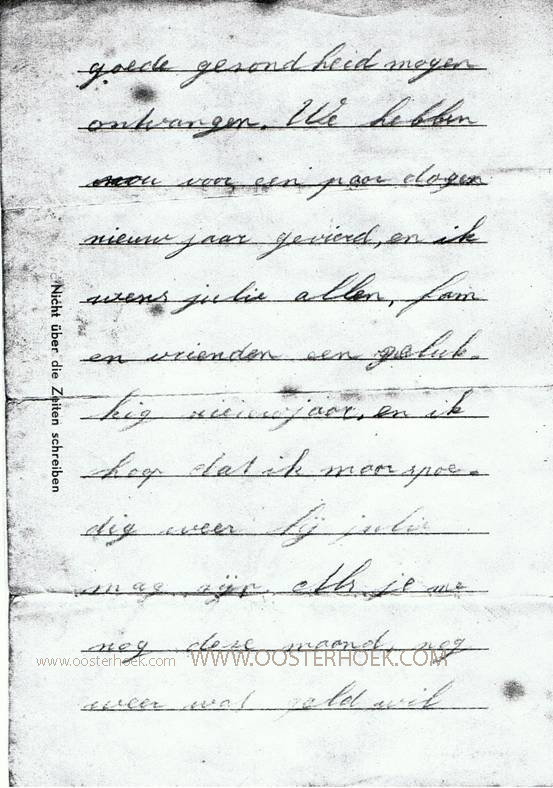 goede gezondheid mogen
ontvangen. We hebben
nou voor een paar dagen
nieuw jaar gevierd, en ik
wens julie allen, fam
en vrienden een geluk-
kig nieuwjaar, en ik
hoop dat ik maar spoe-
dig weer bij julie
mag zijn. Als je me
nog deze maand, nog
weer wat geld wil
Nicht über die Zeilen schreiben
www.oosterhoek.com WWW.OOSTERHOEK.COM